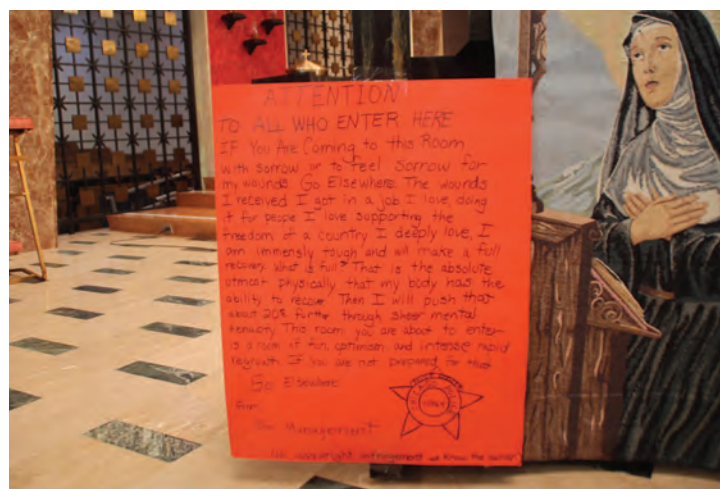 ATTENTION
TO ALL WHO ENTER HERE
IF You Are Coming to this Room
with sorrow or to feel sorrow for
my wounds. Go Elsewhere. The wounds
I received I got in a job I love, doing
it for people I love supporting the
freedom of a country I deeply love, I
am immensly tough and will make a full
recovery. What is full? That is the absolute
utmost physically that my body has the
ability to recover. Then I will push that
about 20% further through sheer mental
tenacity. This room you are about to enter
is a room of fun, optimism, and intense rapid
regrowth. If you are not prepared for that
Go Elsewhere
From:
The Management
No copyright infringement we know the owner